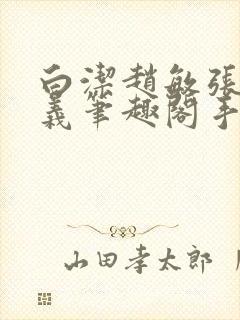 白潔趙敏張
義筆趣閣手
山田孝太郎